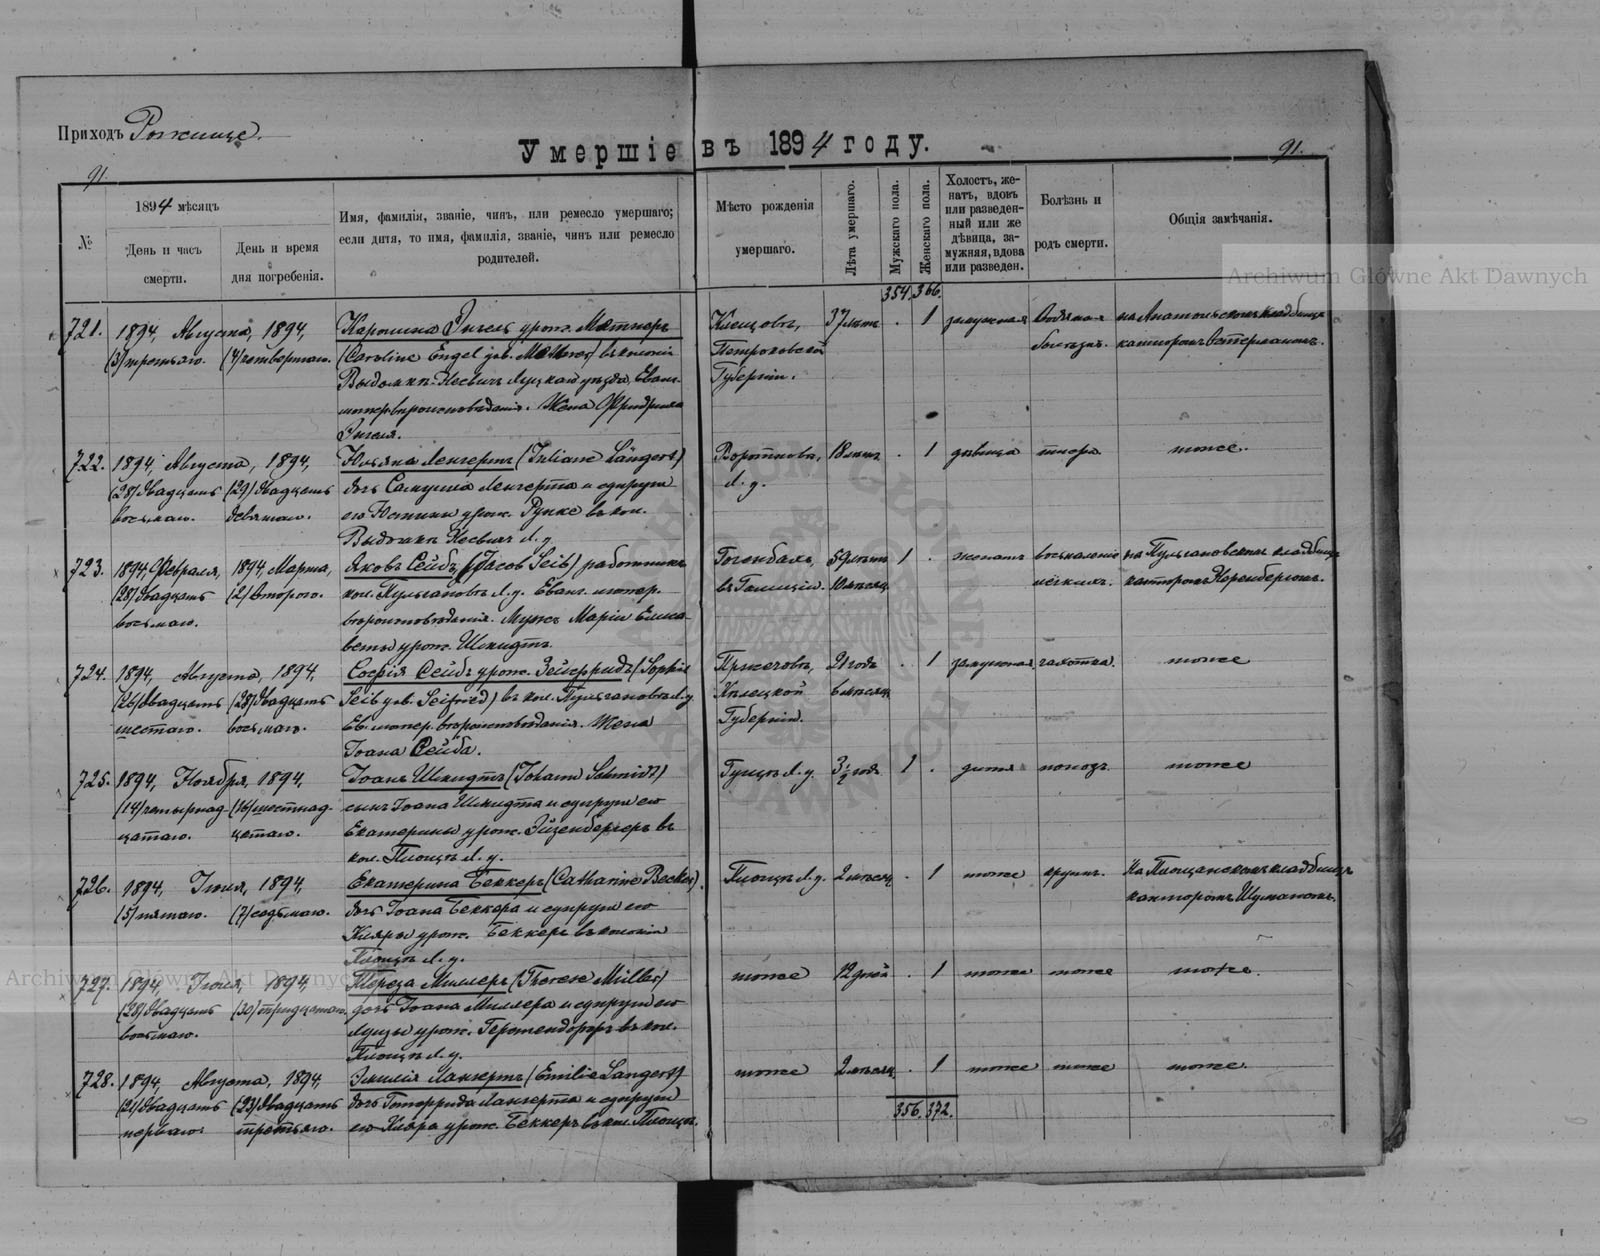 Приходъ Рожище.
Умершіе въ 1894 году.
91.
91.
№
1894 мѣсяцъ
День и часъ смерти.
День и время дня погребенія.
Имя, фамилія, званіе, чинъ, или ремесло умершаго; если дитя, то имя, фамилія, званіе, чинъ или ремесло родителей.
Мѣсто рожденія умершаго.
Лѣта умершаго.
Мужскаго пола.
Женскаго пола.
Холостъ, женатъ, вдовъ или разведенный или же дѣвица, замужняя, вдова или разведен.
Болѣзнь и родъ смерти.
Общія замѣчанія.
354. 366.
721. 1894, Августа, 1894, Каролина Энгель урож. 37 лѣтъ . 1 замужняя Водяная на кладбищѣ
(3) третьяго. (4) четвертаго. (Caroline Engel geb. ) въ колоніи Петроковской болѣзнь. канторомъ
Луцкаго уѣзда, Еванг. Губерніи.
лютер. вѣроисповѣданія. Жена Фридриха
Энгеля.
722. 1894, Августа, 1894, Юльяна Ленгертъ (Juliane Längert) 18 лѣтъ . 1 дѣвица тоже.
(28) двадцать (29) двадцать дочь Самуила Ленгерта и супруги Л. у.
восьмаго. девятаго. его Юстины урож. Рунке въ кол.
Л. у.
723. 1894, Февраля, 1894, Марта, Яковъ Сейбъ (Jacob Seib) работникъ 59 лѣтъ 1 . женатъ воспаленіе на кладбищѣ
(28) двадцать (2) втораго. кол. Пульгановъ Л. у. Еванг. лютер. въ Галиціи. 10 мѣсяц. легкихъ. канторомъ
восьмаго. вѣроисповѣданія. Мужъ Маріи Елиса-
веты урож. Шмидтъ.
724. 1894, Августа, 1894, Софія Сейбъ урож. Зейфридъ (Sophie 21 годъ . 1 замужняя чахотка. тоже
(26) двадцать (28) двадцать Seib geb. Seifried) въ кол. Пульгановъ Л. у. Кѣлецкой 6 мѣсяц.
шестаго. восьмаго. Ев. лютер. вѣроисповѣданія. Жена Губерніи.
Іоана Сейба.
725. 1894, Ноября, 1894, Іоанъ Шмидтъ (Johann Schmidt) Л. у. 3½ годъ 1 . дитя поносъ тоже
(14) четырнад- (16) шестнад- сынъ Іоана Шмидта и супруги его
цатаго. цатаго. Екатерины урож. Эйзенбергеръ въ
кол. Л. у.
726. 1894, Іюля, 1894, Екатерина Беккеръ (Catharine Becker). Л. у. 2 мѣсяц. . 1 тоже крупъ. на кладбищѣ
(5) пятаго. (7) седьмаго. дочь Іоана Беккера и супруги его канторомъ Шуманомъ.
Кляры урож. Беккеръ въ колоніи
Л. у.
727. 1894, Іюля, 1894, Тереза Миллеръ (Therese Müller) тоже 12 дней . 1 тоже тоже тоже.
(28) двадцать (30) тридцатаго. дочь Іоана Миллера и супруги его
восьмаго. Луизы урож. въ кол.
Л. у.
728. 1894, Августа, 1894, Эмилія Лангертъ (Emilie Langert) тоже 2 мѣсяц. . 1 тоже тоже тоже.
(21) двадцать (23) двадцать дочь Готфрида Лангерта и супруги
перваго. третьяго. его Кляра урож. Беккеръ въ кол.
356. 372.
Archiwum Główne Akt Dawnych
Archiwum Główne Akt Dawnych